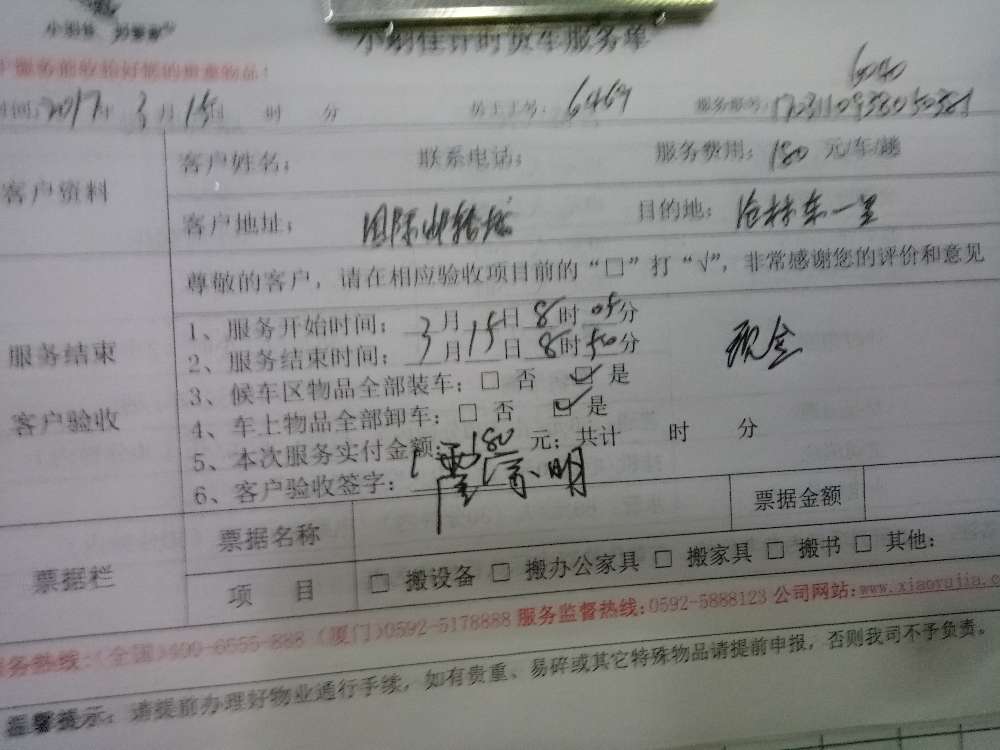 计时货车服务单
服务前收拾好您的贵重物品！
时间：2017年 3月15日 时 分 6469 6040
客户资料
客户姓名： 联系电话： 服务费用：180 元/车/趟
客户地址：国际 目的地：沧林东一里
尊敬的客户，请在相应验收项目前的“□”打“√”，非常感谢您的评价和意见
服务结束
客户验收
1、服务开始时间：3月15日8时05分
2、服务结束时间：3月15日8时50分
现金
3、候车区物品全部装车：□ 否 ☑ 是
4、车上物品全部卸车：□ 否 ☑ 是
5、本次服务实付金额：180 元；共计 时 分
6、客户验收签字：
票据栏
票据名称 票据金额
项 目 □ 搬设备 □ 搬办公家具 □ 搬家具 □ 搬书 □ 其他：
服务热线：(全国)400-6555-888 (厦门)0592-5178888 服务监督热线：0592-5888123 公司网站：www.xiaorujia.c
温馨提示：请提前办理好物业通行手续，如有贵重、易碎或其它特殊物品请提前申报，否则我司不予负责。